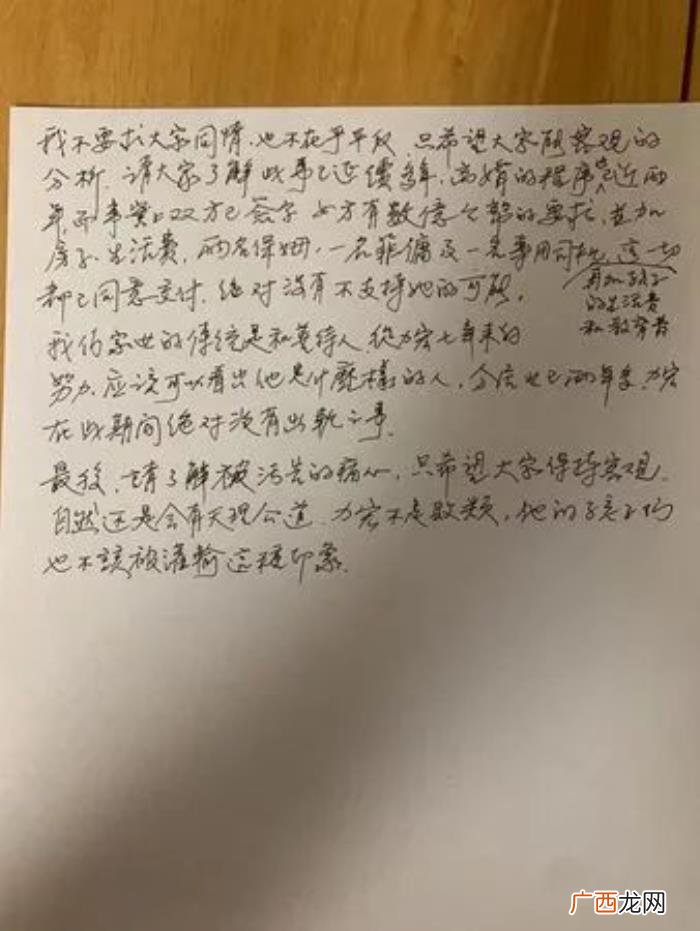 我不要求大家同情，也不在乎平反，只希望大家能客观的
分析，请大家了解此事已延续多年，离婚的程序已近两
年，而事实上双方已签字，女方有数亿的要求，並加
房子、生活费，两名保姆，一名菲傭及一名專用司机，这一切
再加孩子
的生活费
和教育费
都已同意交付，绝对没有不支持她的可能。
我们家世的傳统是和善待人，從力宏七年来的
努力，应该可以看出他是什麼樣的人，分居也已两年多，力宏
在此期间绝对没有出軌之事。
最後，請了解被污告的痛心，只希望大家保持客观，
自然还是会有天理公道，力宏不是败類，他的孩子们
也不該被灌输這種印象。
广西龙网